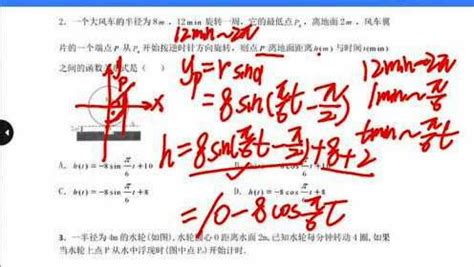 2. 一个大风车的半径为8m，12min旋转一周，它的最低点P₀离地面2m，风车翼
12min~2π
片的一个端点P从P₀开始按逆时针方向旋转，则点P离地面距离h(m)与时间t(min)
之间的函数关系式是（ ）
y_P=rsinα
12min~2π
=8sin(π/6 t-π/2)
1min~π/6
tmin~π/6 t
h=8sin(π/6 t-π/2)+8+2
A. h(t)=-8sin π/6 t+10
C. h(t)=-8sin π/6 t+8
D. h(t)=-8cos π/6 t+8
=10-8cos π/6 t
3. 一半径为4m的水轮(如图)，水轮圆心O距离水面2m，已知水轮每分钟转动4圈，如果
当水轮上点P从水中浮现时(图中点P₀)开始计时.